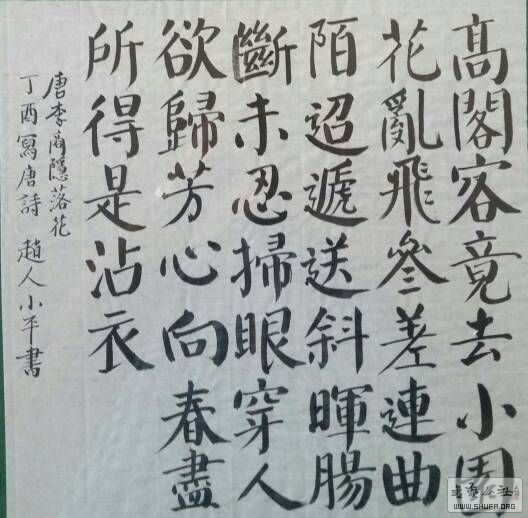 高閣客竟去小園
花亂飛參差連曲
陌迢遞送斜暉腸
斷未忍掃眼穿人
欲歸芳心向春盡
所得是沾衣
唐李商隱落花
丁酉寫唐詩 趙人小平書
書藝公社
WWW.SHUFA.ORG